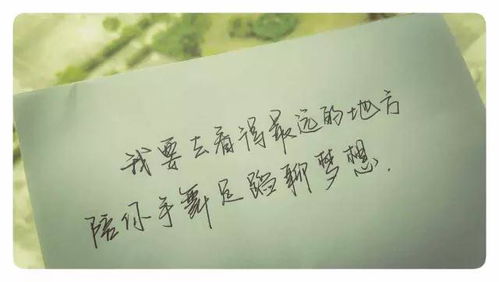 我要去看得最远的地方
陪你手舞足蹈聊梦想.